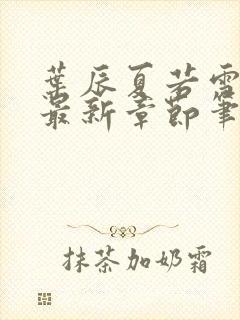 葉辰夏若雪
最新章節筆
抹茶加奶霜